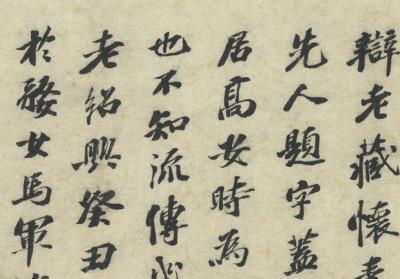 辯老藏懷素
先人題字蓋
居高安時為
也不知流傳
老紹興癸丑
於婺女馬軍